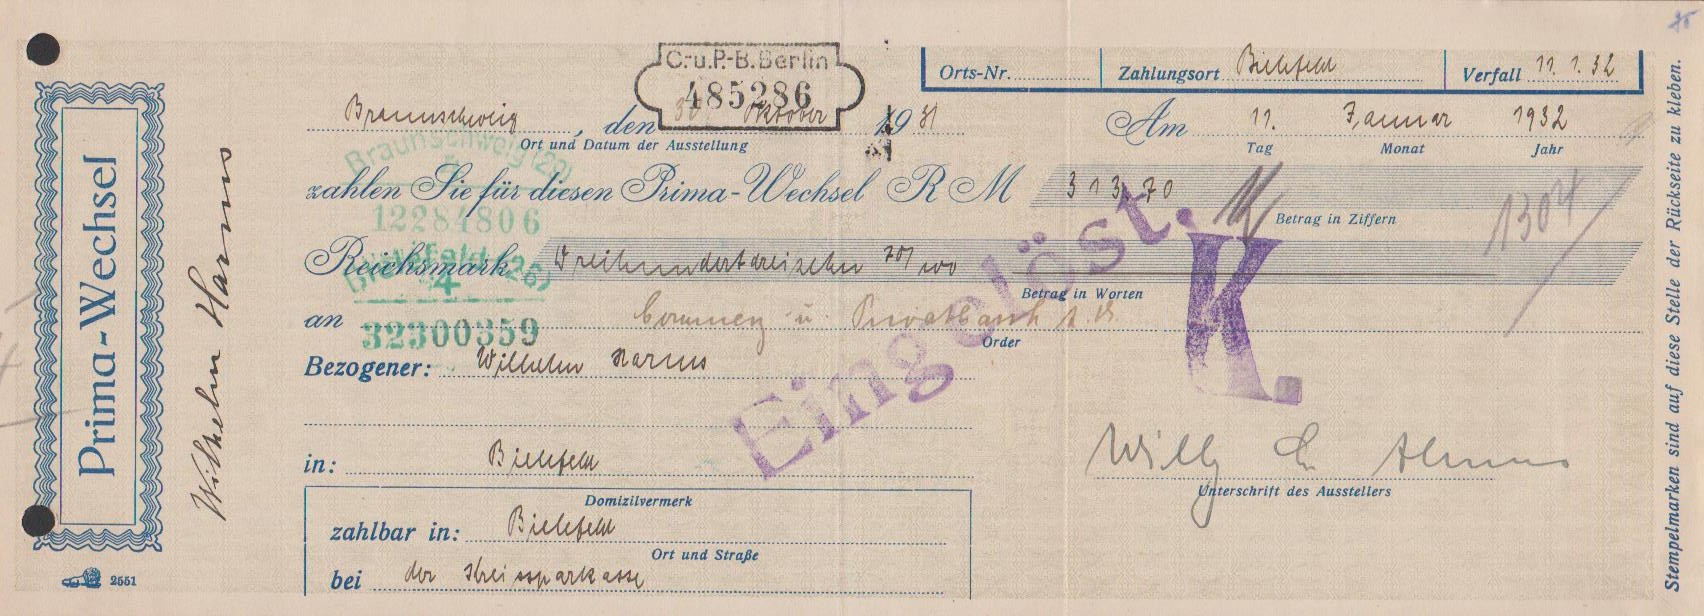 C.u.P.-B.Berlin
485286
Orts-Nr. Zahlungsort Bielefeld Verfall 11. 1. 32
Braunschweig, den 30. Oktober 1931 Am 11. Januar 1932
Ort und Datum der Ausstellung Tag Monat Jahr
Braunschweig (20)
zahlen Sie für diesen Prima-Wechsel RM 313,70
12284806
Betrag in Ziffern
1304
Reichsmark Dreihundertdreizehn 70/100
Bielefeld (26)
4
Betrag in Worten
an Commerz u. Privatbank
32300359
Order
Bezogener: Wilhelm Harms
Eingelöst.
K.
in: Bielefeld
Willy
Unterschrift des Ausstellers
Domizilvermerk
zahlbar in: Bielefeld
Ort und Straße
bei der Kreissparkasse
Prima-Wechsel
2551
Wilhelm Harms
Stempelmarken sind auf diese Stelle der Rückseite zu kleben.